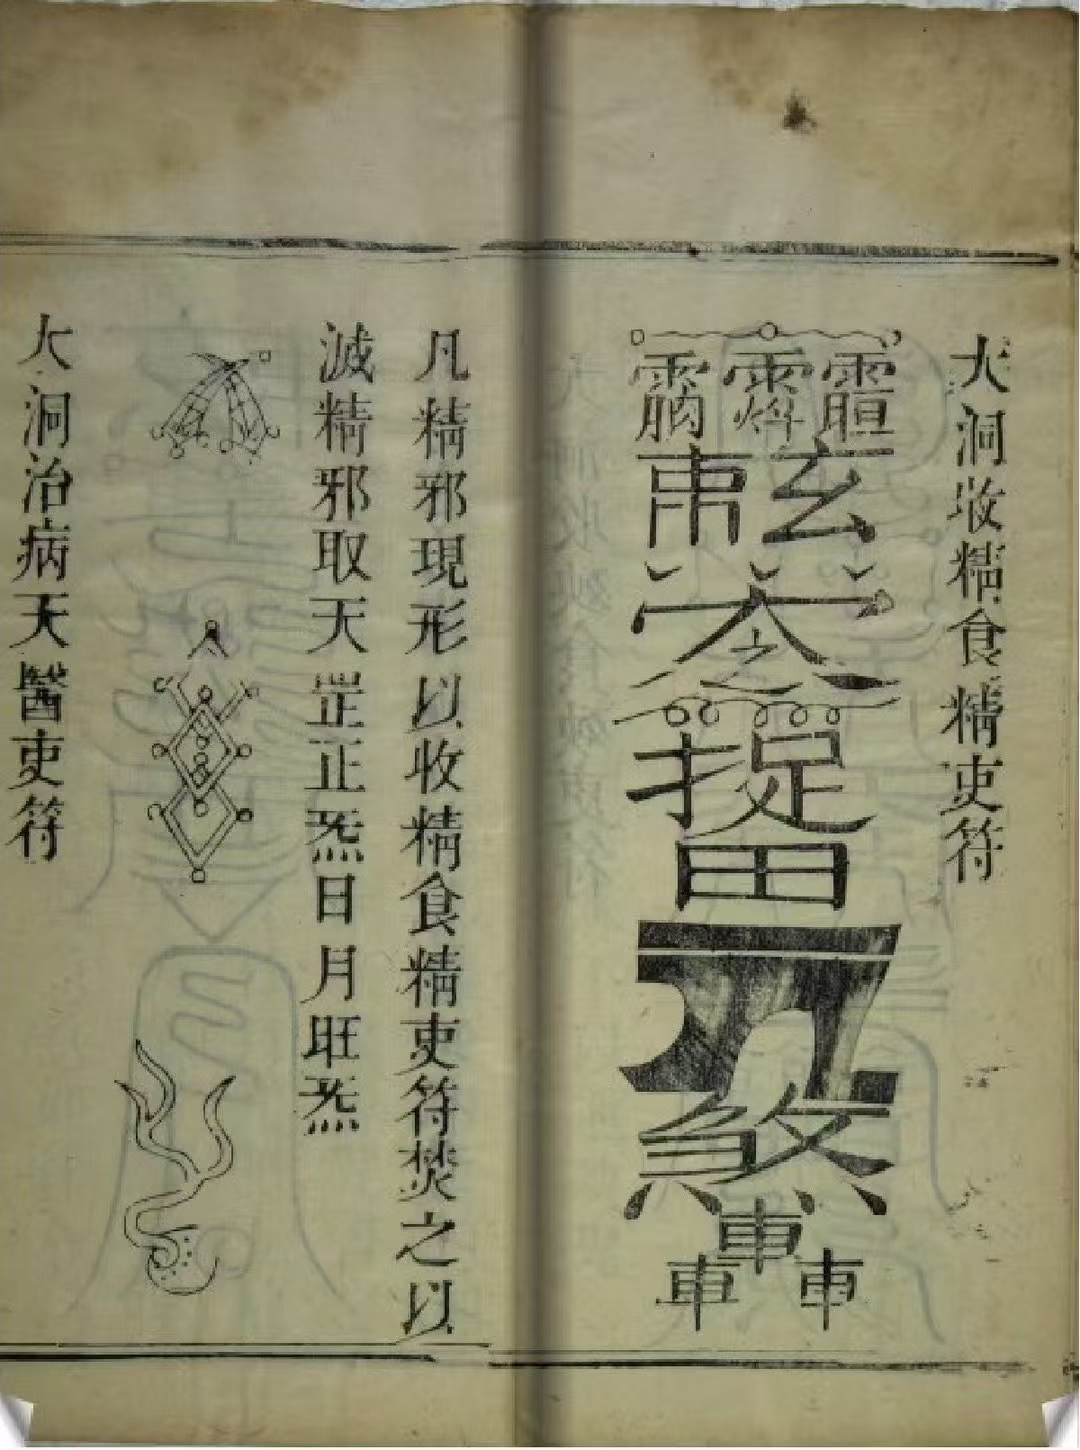 大洞收精食精吏符
玄帝
捉
田
煞
車
車車
凡精邪現形以收精食精吏符焚之以
滅精邪取天罡正炁日月旺炁
大洞治病天醫吏符